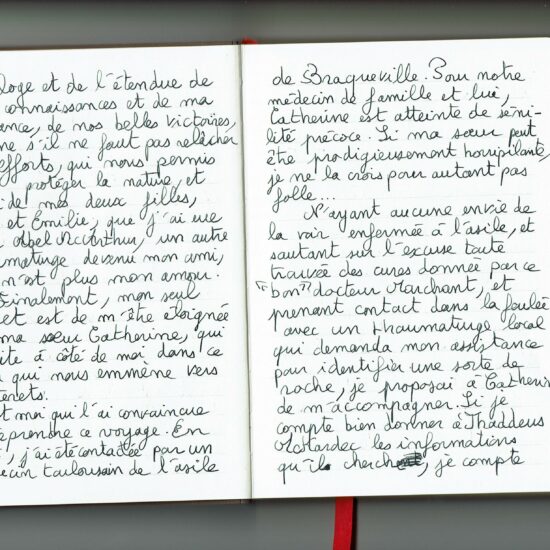 loge et de l'étendue de
connaissances et de ma
ance, de nos belles victoires,
ne s'il ne faut pas relâcher
efforts, qui nous permis
protéger la nature, et
de mes deux filles,
et Emilie, que j'ai eue
Abel McArthur, un autre
maturge devenu mon ami,
n'est plus mon amour.
Finalement, mon seul
et est de m'être éloignée
ma sœur Catherine, qui
ite à côté de moi dans ce
qui nous emmène vers
t moi qui l'ai convaincue
prendre ce voyage. En
, j'ai été contactée par un
ecin toulousain de l'asile
de Braqueville. Pour notre
médecin de famille et lui,
Catherine est atteinte de séni-
lité précoce. Si ma sœur peut
être prodigieusement horripilante,
je ne la crois pour autant pas
folle...
N'ayant aucune envie de
la voir enfermée à l'asile, et
sautant sur l'excuse toute
trouvée des cures donnée par ce
"bon" docteur Marchant, et
prenant contact dans la foulée
avec un thaumaturge local
qui demanda mon assistance
pour identifier une sorte de
roche, je proposai à Catherine
de m'accompagner. Si je
compte bien donner à Thaddeus
les informations
qu'il cherch, je compte